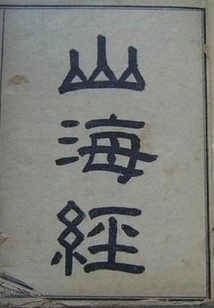 山海經